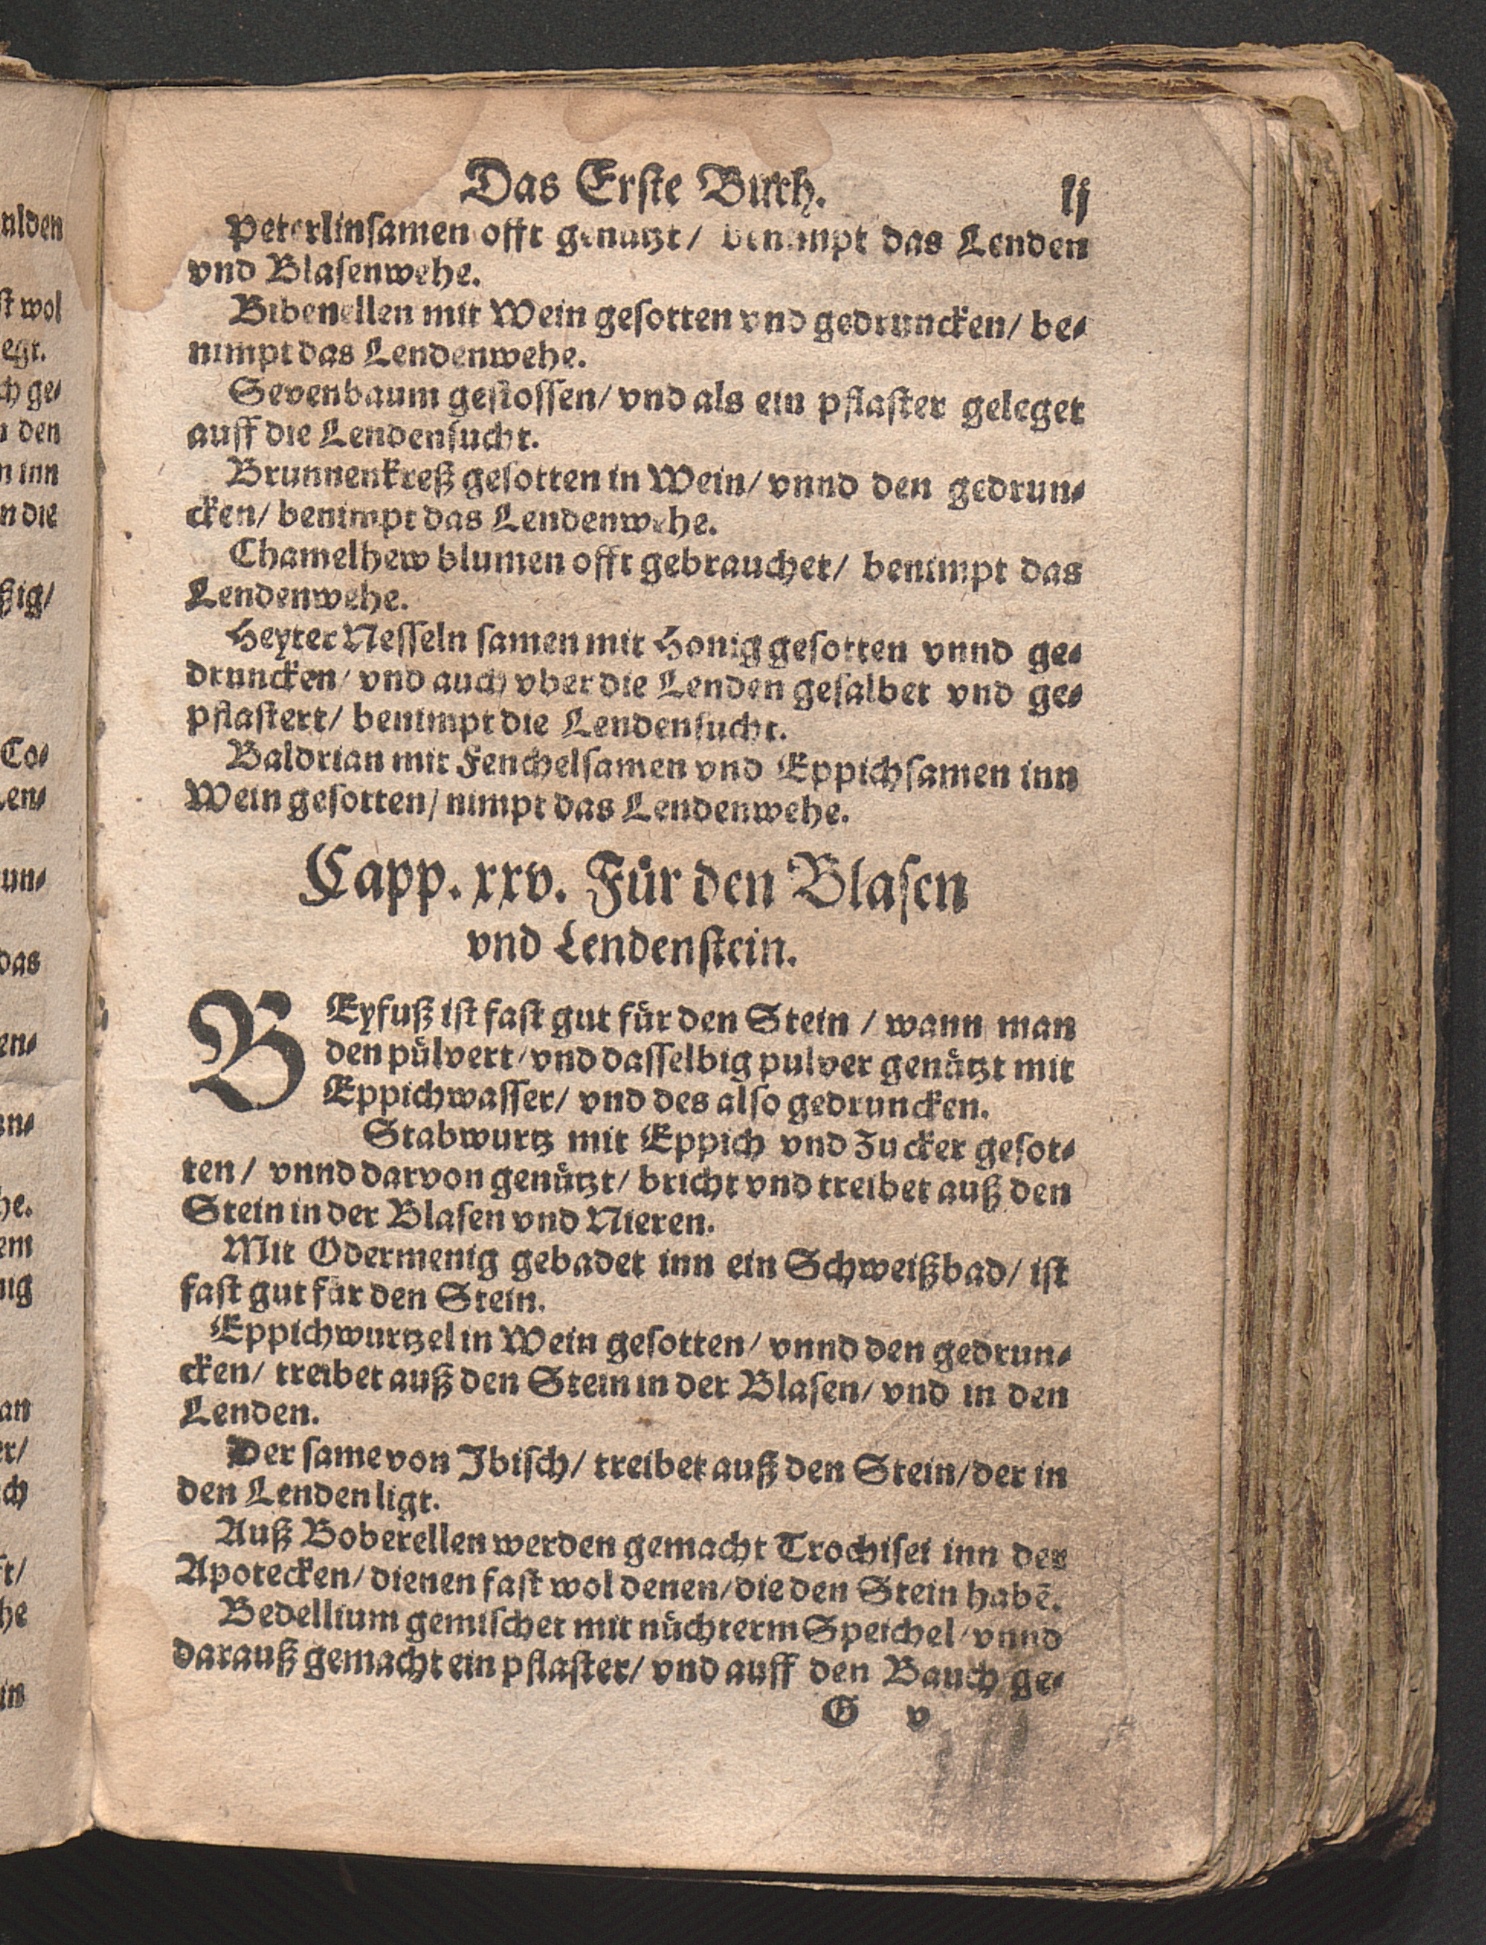 Das Erste Buch. lj
Peterlinsamen offt genützt/ benimpt das Lenden
vnd Blasenwehe.
Bibenellen mit Wein gesotten vnd gedruncken/ be⸗
nimpt das Lendenwehe.
Sevenbaum gestossen/ vnd als ein pflaster geleget
auff die Lendensucht.
Brunnenkreß gesotten in Wein/ vnnd den gedrun⸗
cken/ benimpt das Lendenwehe.
Chamelhew blumen offt gebrauchet/ benimpt das
Lendenwehe.
Heyter Nesseln samen mit Honig gesotten vnnd ge⸗
druncken/ vnd auch vber die Lenden gesalbet vnd ge⸗
pflastert/ benimpt die Lendensucht.
Baldrian mit Fenchelsamen vnd Eppichsamen inn
Wein gesotten/ nimpt das Lendenwehe.
Capp. xxv. Für den Blasen
vnd Lendenstein.
BEyfuß ist fast gut für den Stein / wann man
den pülvert/ vnd dasselbig pulver genützt mit
Eppichwasser/ vnd des also gedruncken.
Stabwurtz mit Eppich vnd Zucker gesot⸗
ten/ vnnd darvon genützt/ bricht vnd treibet auß den
Stein in der Blasen vnd Nieren.
Mit Odermenig gebadet inn ein Schweißbad/ ist
fast gut für den Stein.
Eppichwurtzel in Wein gesotten/ vnnd den gedrun⸗
cken/ treibet auß den Stein in der Blasen/ vnd in den
Lenden.
Der same von Ibisch/ treibet auß den Stein/ der in
den Lenden ligt.
Auß Boberellen werden gemacht Trochisci inn der
Apotecken/ dienen fast wol denen/ die den Stein habē.
Bedellium gemischet mit nüchterm Speichel/ vnnd
darauß gemacht ein pflaster/ vnd auff den Bauch ge⸗
G v